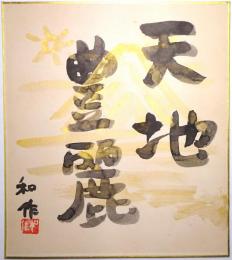 天地
豊麗
和作